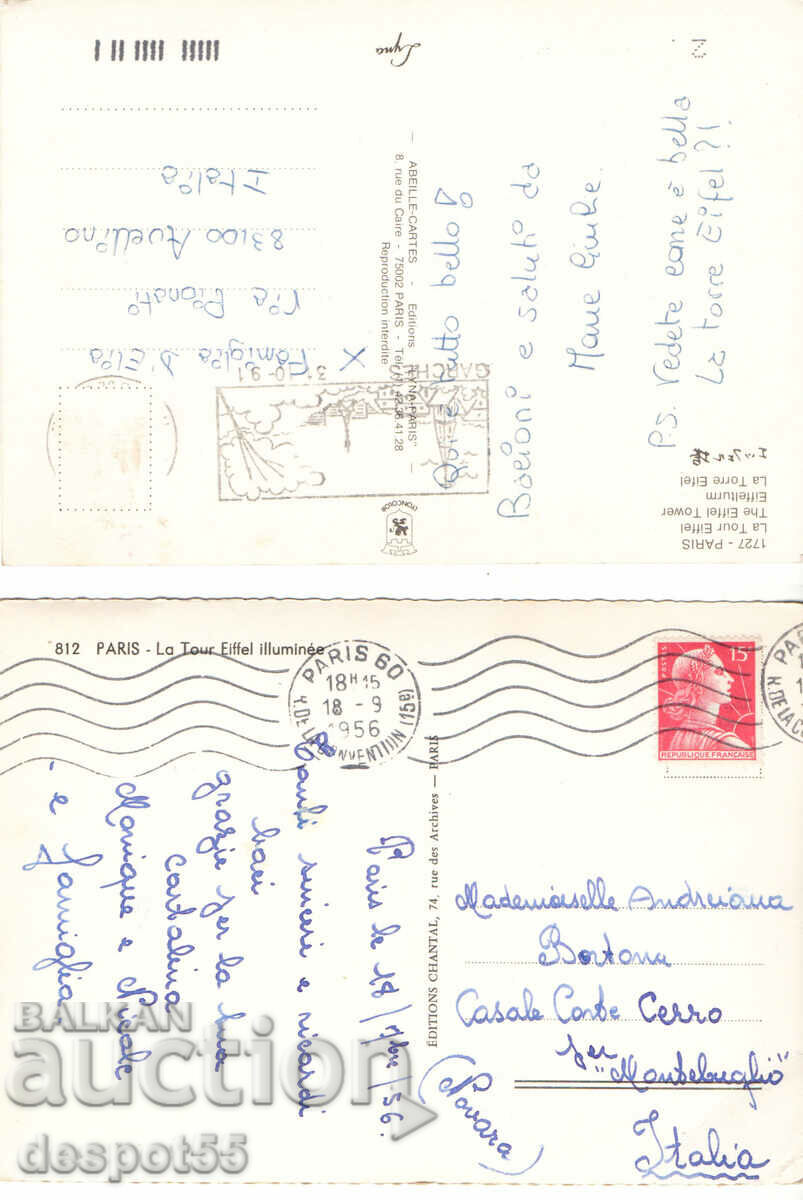 1727 - PARIS
La Tour Eiffel
The Eiffel Tower
Eiffelturm
La Torre Eifel
Qui è tutto bello!
Bacioni e saluti da
P.S. Vedete come è bella
La torre Eifel?!
ABEILLE-CARTES - Editions "LYNA-PARIS"
8, rue du Caire - 75002 PARIS - Tél. (1) 42.36.41.28
Reproduction interdite
Lyna
GARCHES
Famiglia D'Elia
Via Pionati
83100 Avellino
Italia
812 PARIS - La Tour Eiffel illuminée
PARIS 60
18H15
18 - 9
1956
R. DE LA CONVENTION (15è)
POSTES
15F
REPUBLIQUE FRANÇAISE
Paris le 18/7bre/56.
Tanti sinceri e ricordi
baci
grazie per la tua
cartolina
Monique e Nicole
- e famiglia -
ÉDITIONS CHANTAL, 74, rue des Archives - PARIS
Mademoiselle Andreiana
Bortona
Casale Corte Cerro
per "Montebuglio"
(Novara)
Italia
BALKAN
auction
despot55